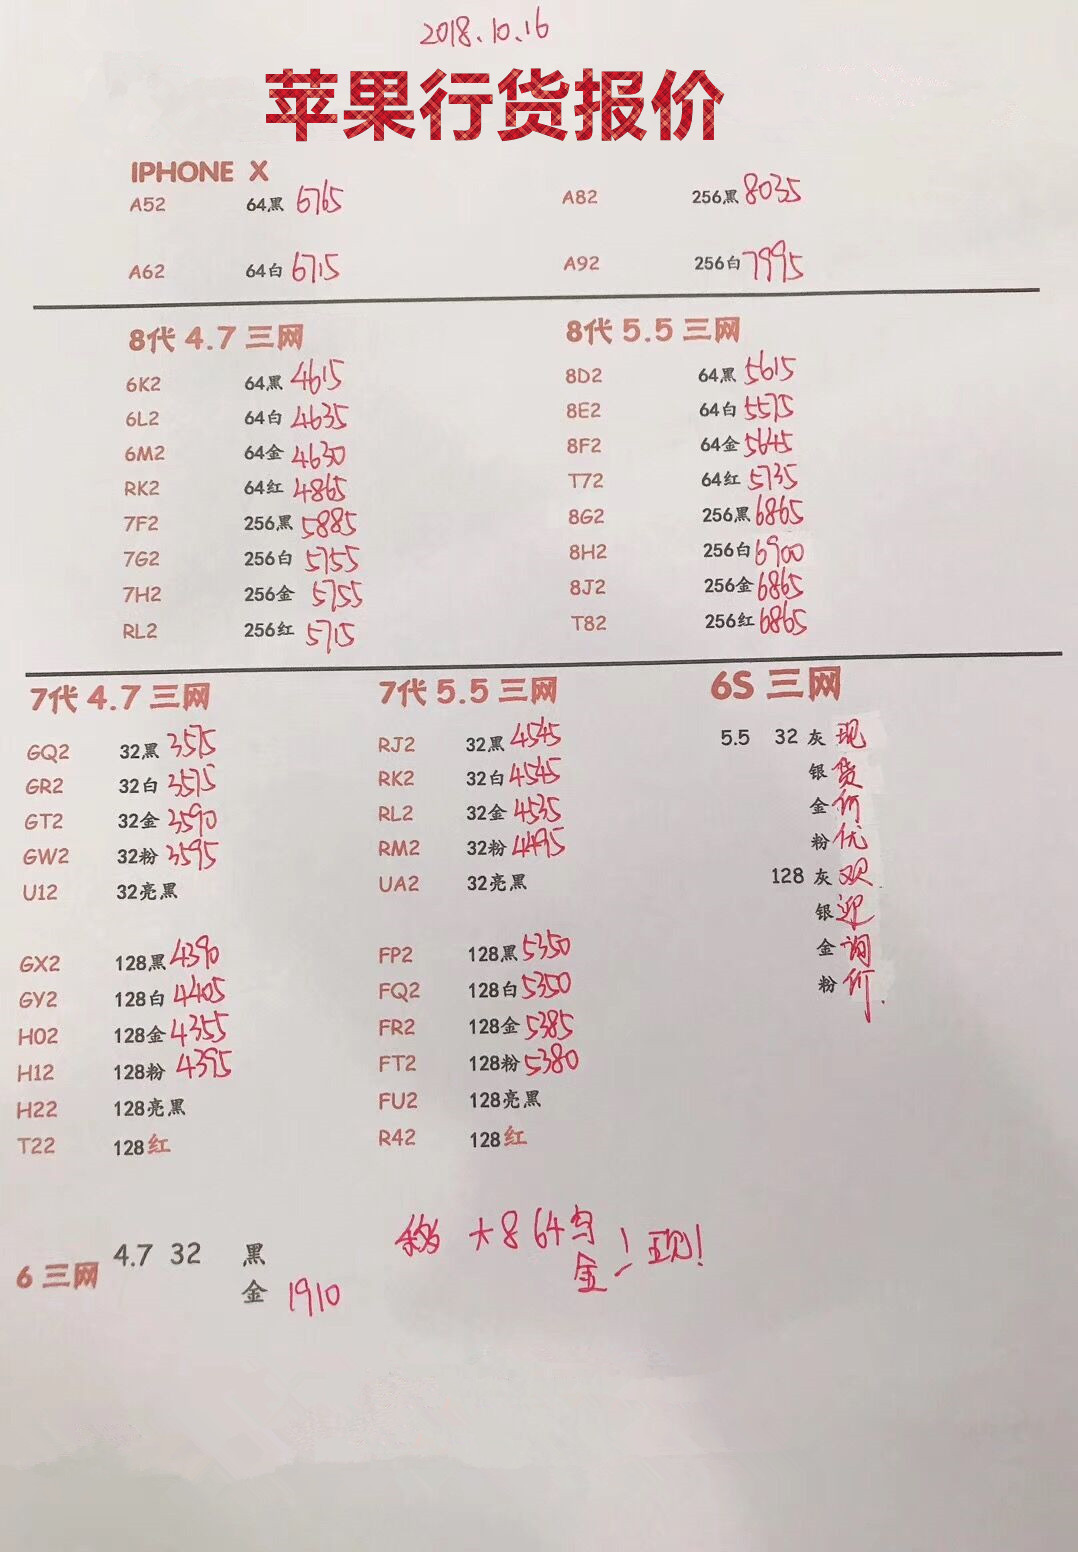 2018.10.16
苹果行货报价
IPHONE X
A52 64黑 6765 A82 256黑 8035
A62 64白 6715 A92 256白 7995
8代 4.7 三网 8代 5.5 三网
6K2 64黑 4615 8D2 64黑 5615
6L2 64白 4635 8E2 64白 5575
6M2 64金 4630 8F2 64金 5645
RK2 64红 4865 T72 64红 5735
7F2 256黑 5885 8G2 256黑 6865
7G2 256白 5755 8H2 256白 6900
7H2 256金 5755 8J2 256金 6865
RL2 256红 5715 T82 256红 6865
7代 4.7 三网 7代 5.5 三网 6S 三网
GQ2 32黑 3575 RJ2 32黑 4545 5.5 32 灰 现
GR2 32白 3575 RK2 32白 4545 银 货
GT2 32金 3590 RL2 32金 4535 金 价
GW2 32粉 3595 RM2 32粉 4495 粉 优
U12 32亮黑 UA2 32亮黑 128 灰 欢
银 迎
GX2 128黑 4390 FP2 128黑 5350 金 询
GY2 128白 4405 FQ2 128白 5350 粉 价.
H02 128金 4355 FR2 128金 5385
H12 128粉 4395 FT2 128粉 5380
H22 128亮黑 FU2 128亮黑
T22 128红 R42 128红
6 三网 4.7 32 黑
金 1910
大8 64
金 ! 现!